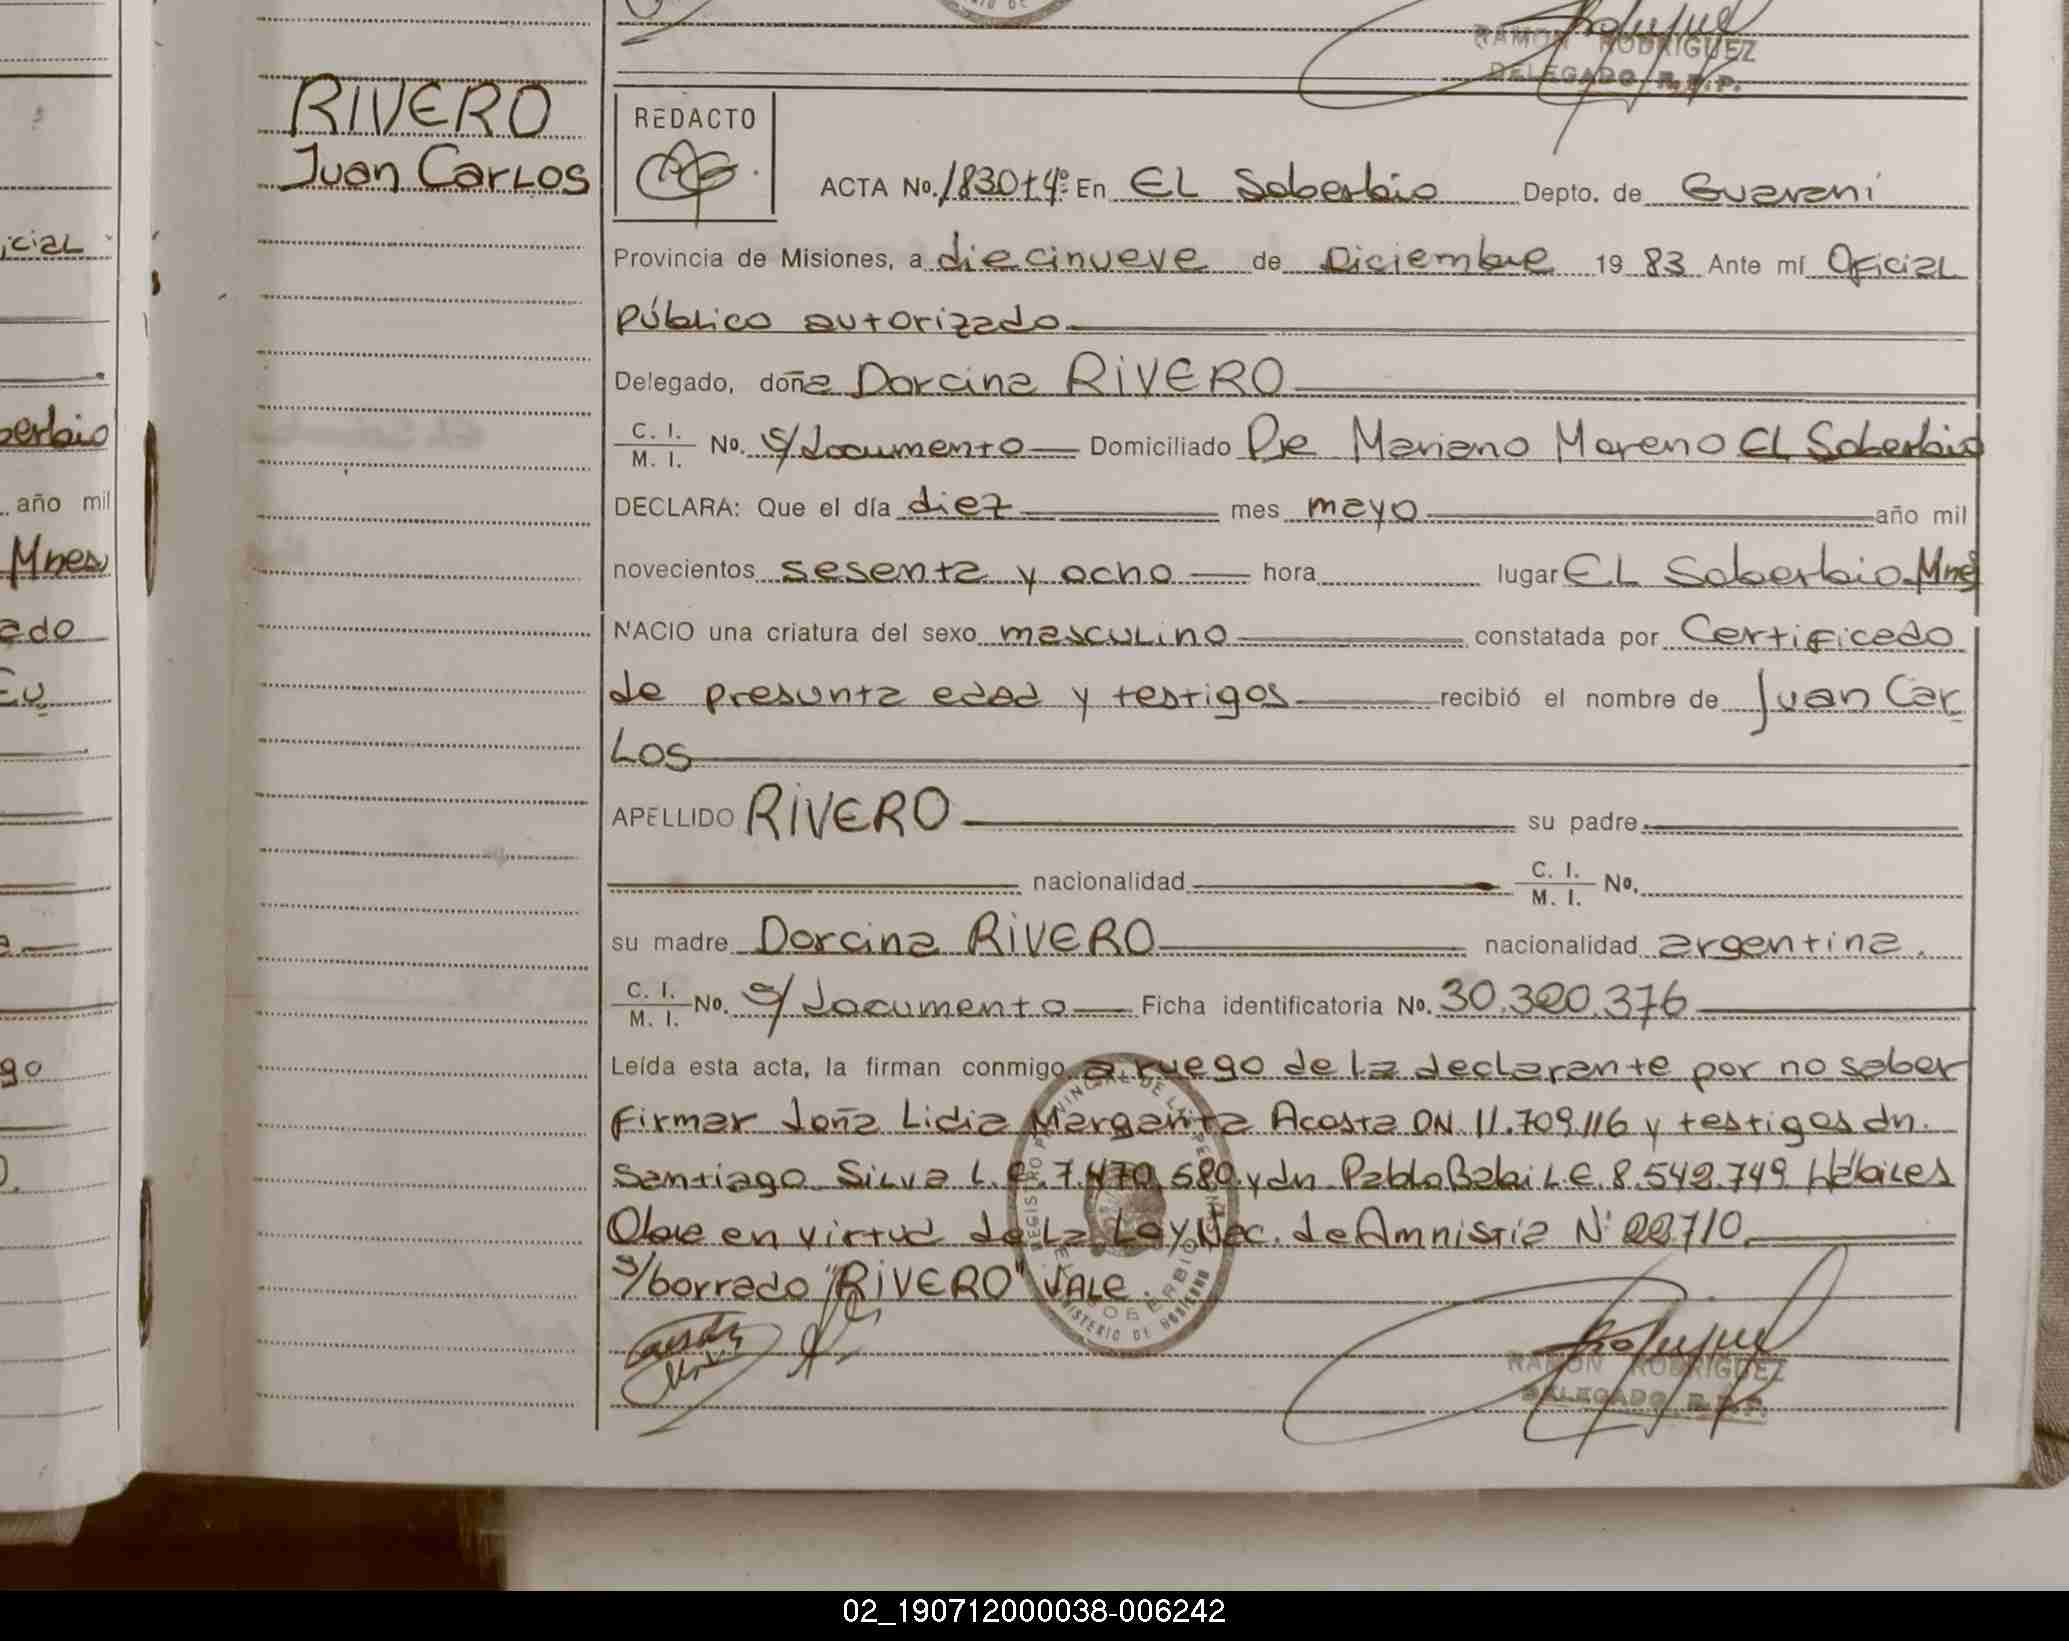 RAMON RODRIGUEZ
DELEGADO R.P.P.
RIVERO
Juan Carlos
REDACTO
ACTA No. 1830 t4º En EL Soberbio Depto. de Guarani
Provincia de Misiones, a diecinueve de Diciembre 19 83 Ante mí Oficial
público autorizado
Delegado, doña Dorcina RIVERO
C. I. M. I. No. s/documento Domiciliado Pje Mariano Moreno EL Soberbio
DECLARA: Que el día diez mes mayo año mil
novecientos sesenta y ocho hora lugar EL Soberbio Mnes
NACIO una criatura del sexo masculino constatada por Certificado
de presunta edad y testigos recibió el nombre de Juan Car
Los
APELLIDO RIVERO su padre
nacionalidad C. I. M. I. No.
su madre Dorcina RIVERO nacionalidad argentina.
C. I. M. I. No. s/documento Ficha identificatoria No. 30.320.376
Leída esta acta, la firman conmigo a ruego de la declarante por no saber
firmar doña Lidia Margarita Acosta DN. 11.709.116 y testigos dn.
Santiago Silva L.E. 7.470.580 y dn Pablo Babi L.E. 8.542.749 Hábiles
Obre en virtud de La Ley Nac. de Amnistia Nº 22710.
s/borrado "RIVERO" VALE.
RAMON RODRIGUEZ
DELEGADO R.P.P.
icial
berbio
año mil
Mnes
ado
go
02_190712000038-006242